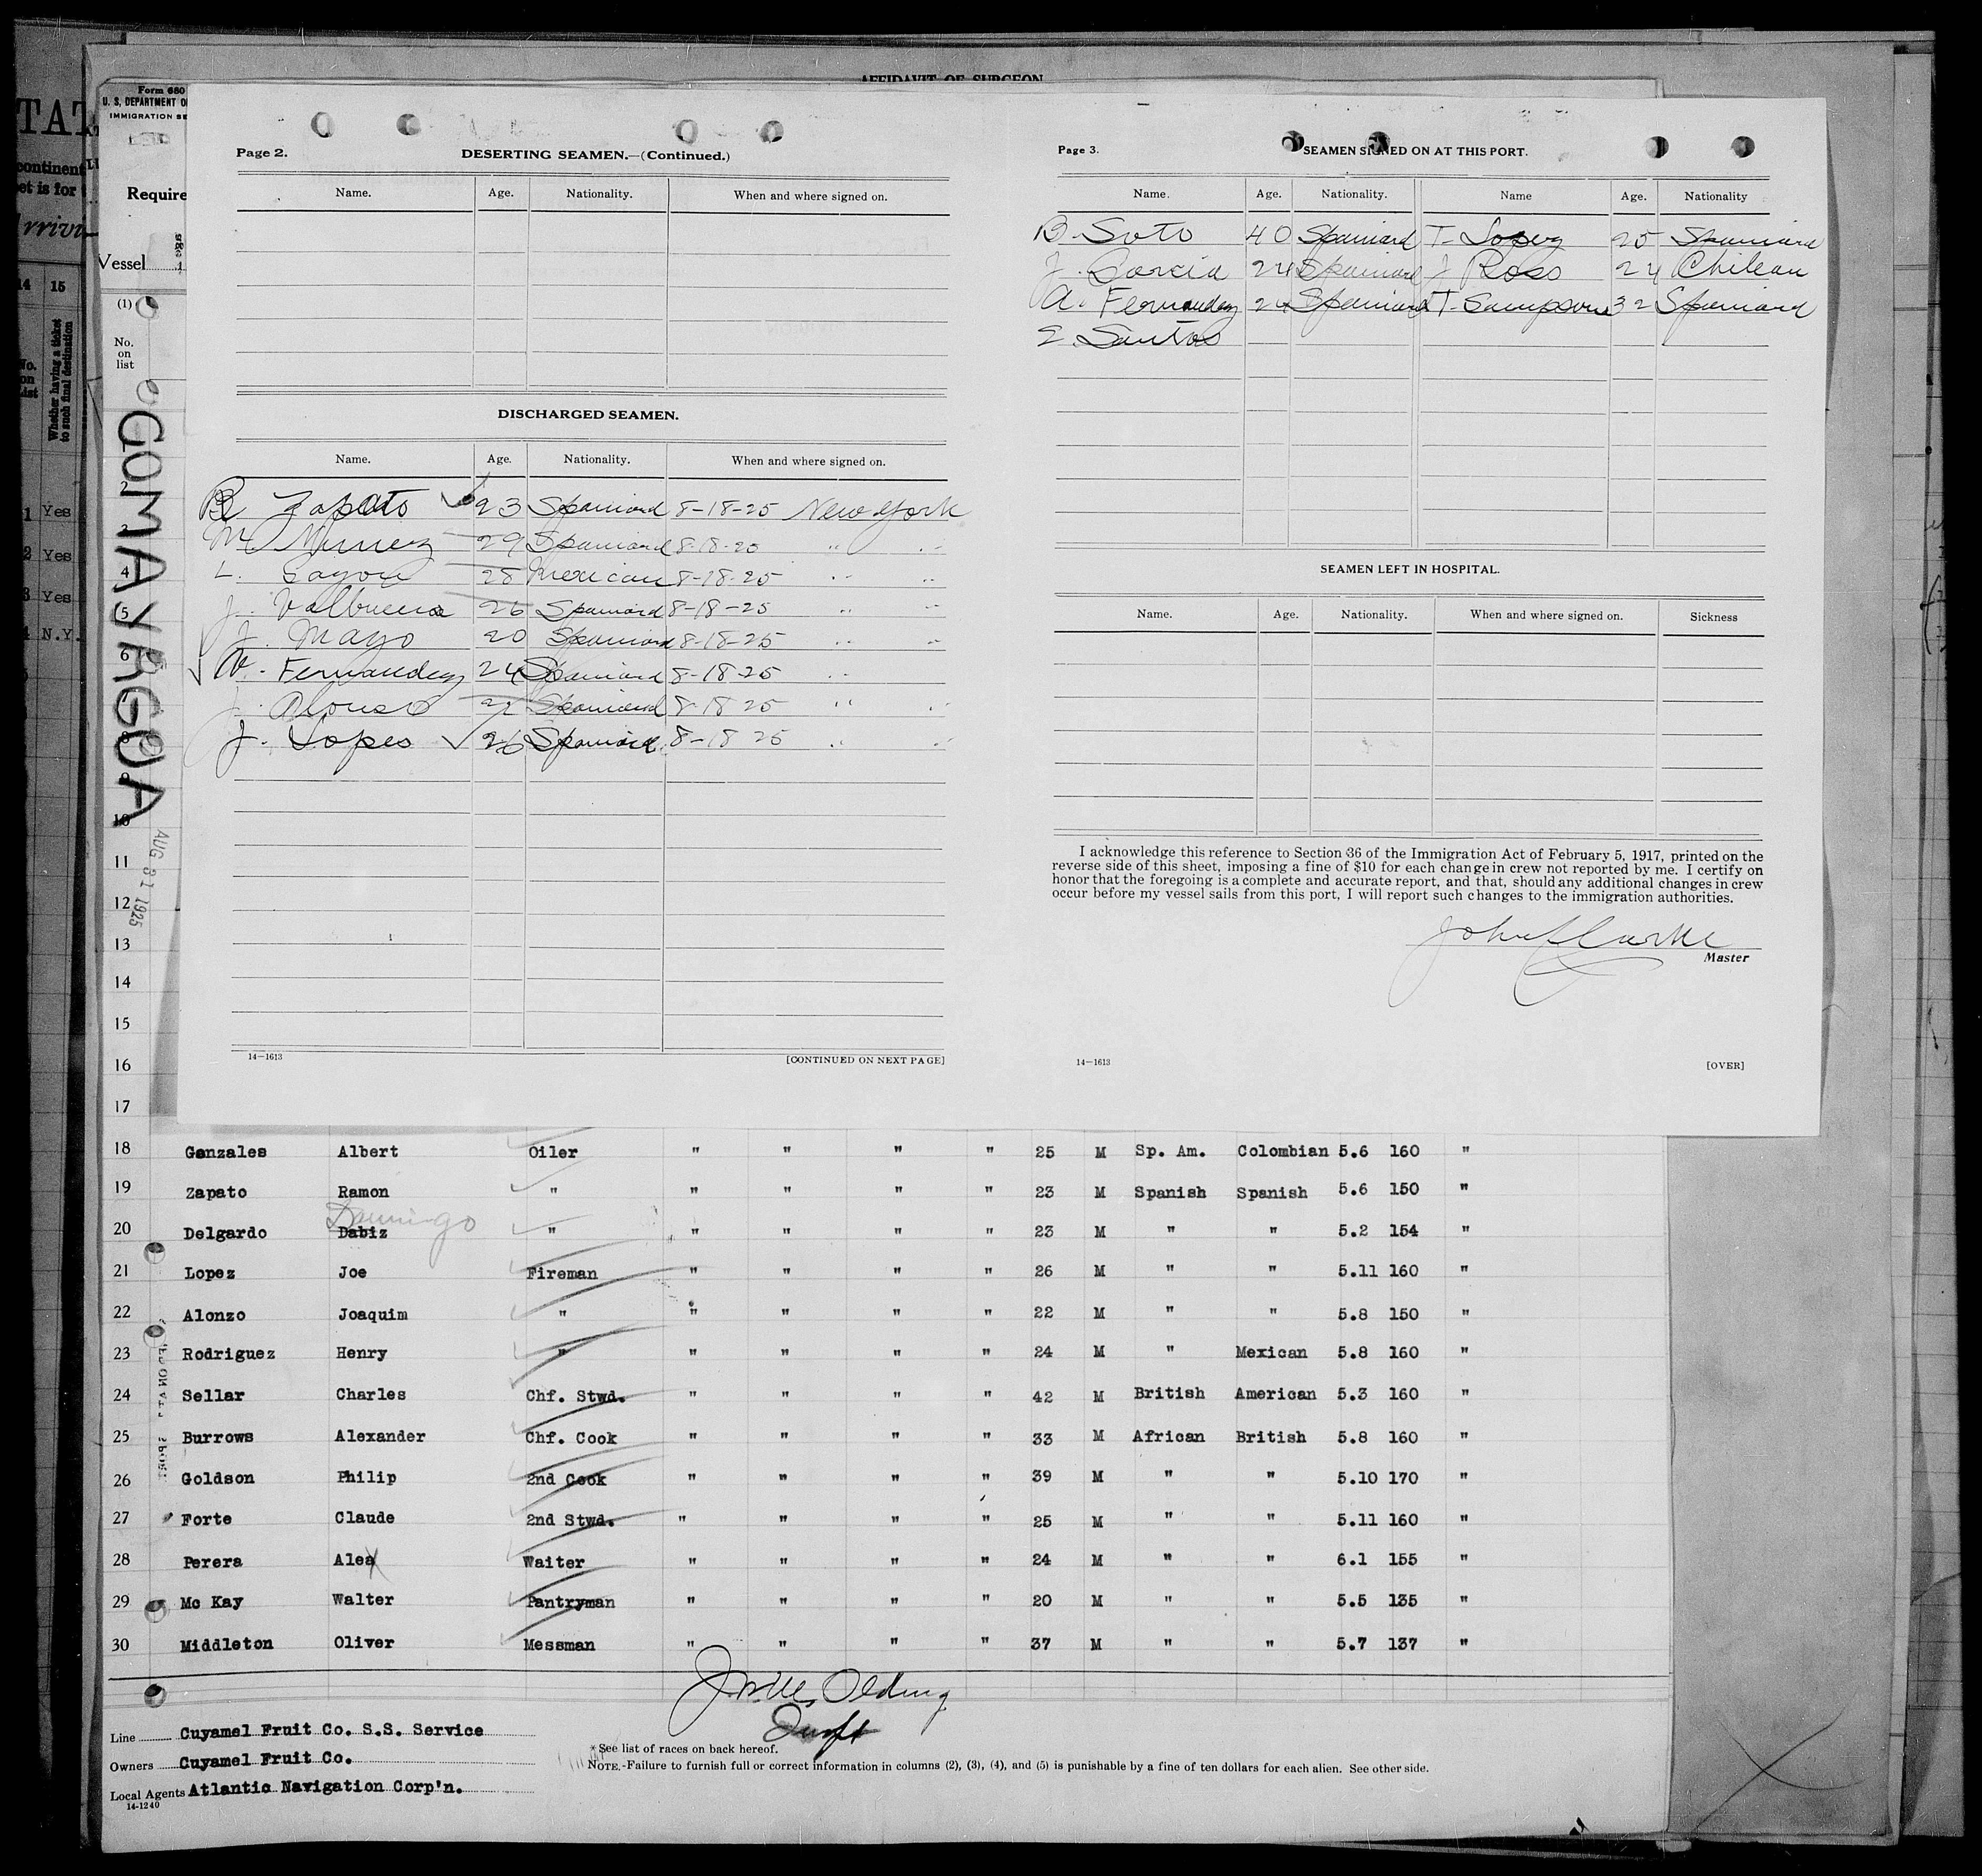 AFFIDAVIT OF SURGEON
TAT
continent
et is for
rrivi
14 15
No. on List
Whether having a ticket to such final destination
1 Yes
2 Yes
3 Yes
4 N.Y.
Form 680
U. S. DEPARTMENT O
IMMIGRATION SE
Require
Vessel
(1)
No. on list
COMAYAGUA
AUG 31 1925
Page 2. DESERTING SEAMEN.—(Continued.)
Name. Age. Nationality. When and where signed on.
DISCHARGED SEAMEN.
Name. Age. Nationality. When and where signed on.
R Zapato 23 Spaniard 8-18-25 New York
M Nunez 29 Spaniard 8-18-25 " "
L. 28 Mexican 8-18-25 " "
J. Valbuena 26 Spaniard 8-18-25 " "
J. Mayo 20 Spaniard 8-18-25 " "
Fernandez 24 Spaniard 8-18-25 "
J. Alonso Spaniard 8-18 25 " "
J. Lopes 26 Spaniard 8-18 25 " "
14—1613 [CONTINUED ON NEXT PAGE]
Page 3. SEAMEN SIGNED ON AT THIS PORT.
Name. Age. Nationality. Name Age. Nationality
B. Soto 40 Spaniard T. Lopez 25 Spaniard
J. Garcia 24 Spaniard J Ross 24 Chilean
A. Fernandez 24 Spaniard T. Sampson 32 Spaniard
E. Santos
SEAMEN LEFT IN HOSPITAL.
Name. Age. Nationality. When and where signed on. Sickness
I acknowledge this reference to Section 36 of the Immigration Act of February 5, 1917, printed on the
reverse side of this sheet, imposing a fine of $10 for each change in crew not reported by me. I certify on
honor that the foregoing is a complete and accurate report, and that, should any additional changes in crew
occur before my vessel sails from this port, I will report such changes to the immigration authorities.
John Clarke
Master
14—1613 [OVER]
2
3
4
5
6
7
8
9
10
11
12
13
14
15
16
17
18 Gonzales Albert Oiler " " " " 25 M Sp. Am. Colombian 5.6 160 "
19 Zapato Ramon " " " " " 23 M Spanish Spanish 5.6 150 "
Domingo
20 Delgardo Dabiz " " " " " 23 M " " 5.2 154 "
21 Lopez Joe Fireman " " " " 26 M " " 5.11 160 "
22 Alonzo Joaquim " " " " " 22 M " " 5.8 150 "
23 Rodriguez Henry " " " " " 24 M " Mexican 5.8 160 "
24 Sellar Charles Chf. Stwd. " " " " 42 M British American 5.3 160 "
25 Burrows Alexander Chf. Cook " " " " 33 M African British 5.8 160 "
26 Goldson Philip 2nd Cook " " " " 39 M " " 5.10 170 "
27 Forte Claude 2nd Stwd. " " " " 25 M " " 5.11 160 "
28 Perera Alex Waiter " " " " 24 M " " 6.1 155 "
29 Mc Kay Walter Pantryman " " " " 20 M " " 5.5 135 "
30 Middleton Oliver Messman " " " " 37 M " " 5.7 137 "
Olding
Line Cuyamel Fruit Co. S.S. Service
Owners Cuyamel Fruit Co.
Local Agents Atlantic Navigation Corp'n.
14-1240
*See list of races on back hereof.
NOTE.-Failure to furnish full or correct information in columns (2), (3), (4), and (5) is punishable by a fine of ten dollars for each alien. See other side.